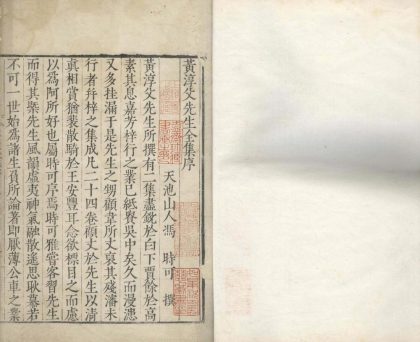 黃淳父先生全集序
天池山人馮 時可 撰
黃淳父先生所撰有二集盡銳於白下賈餘於高
素其息嘉芳梓行之業已紙貴吳中矣久而漫漶
又多挂漏于是先生之甥顧韋所丈裒其殘瀋未
行者幷梓之集成凡二十四卷顧丈於先生以清
眞相賞猶裴散騎於王安豐耳念欲標目之而慮
以爲阿所好也屬時可序焉時可雅嘗客習先生
而得其槩先生風韻虛夷神氣融散遥思耿慕若
不可一世始爲諸生員所論著即厭薄公車之業